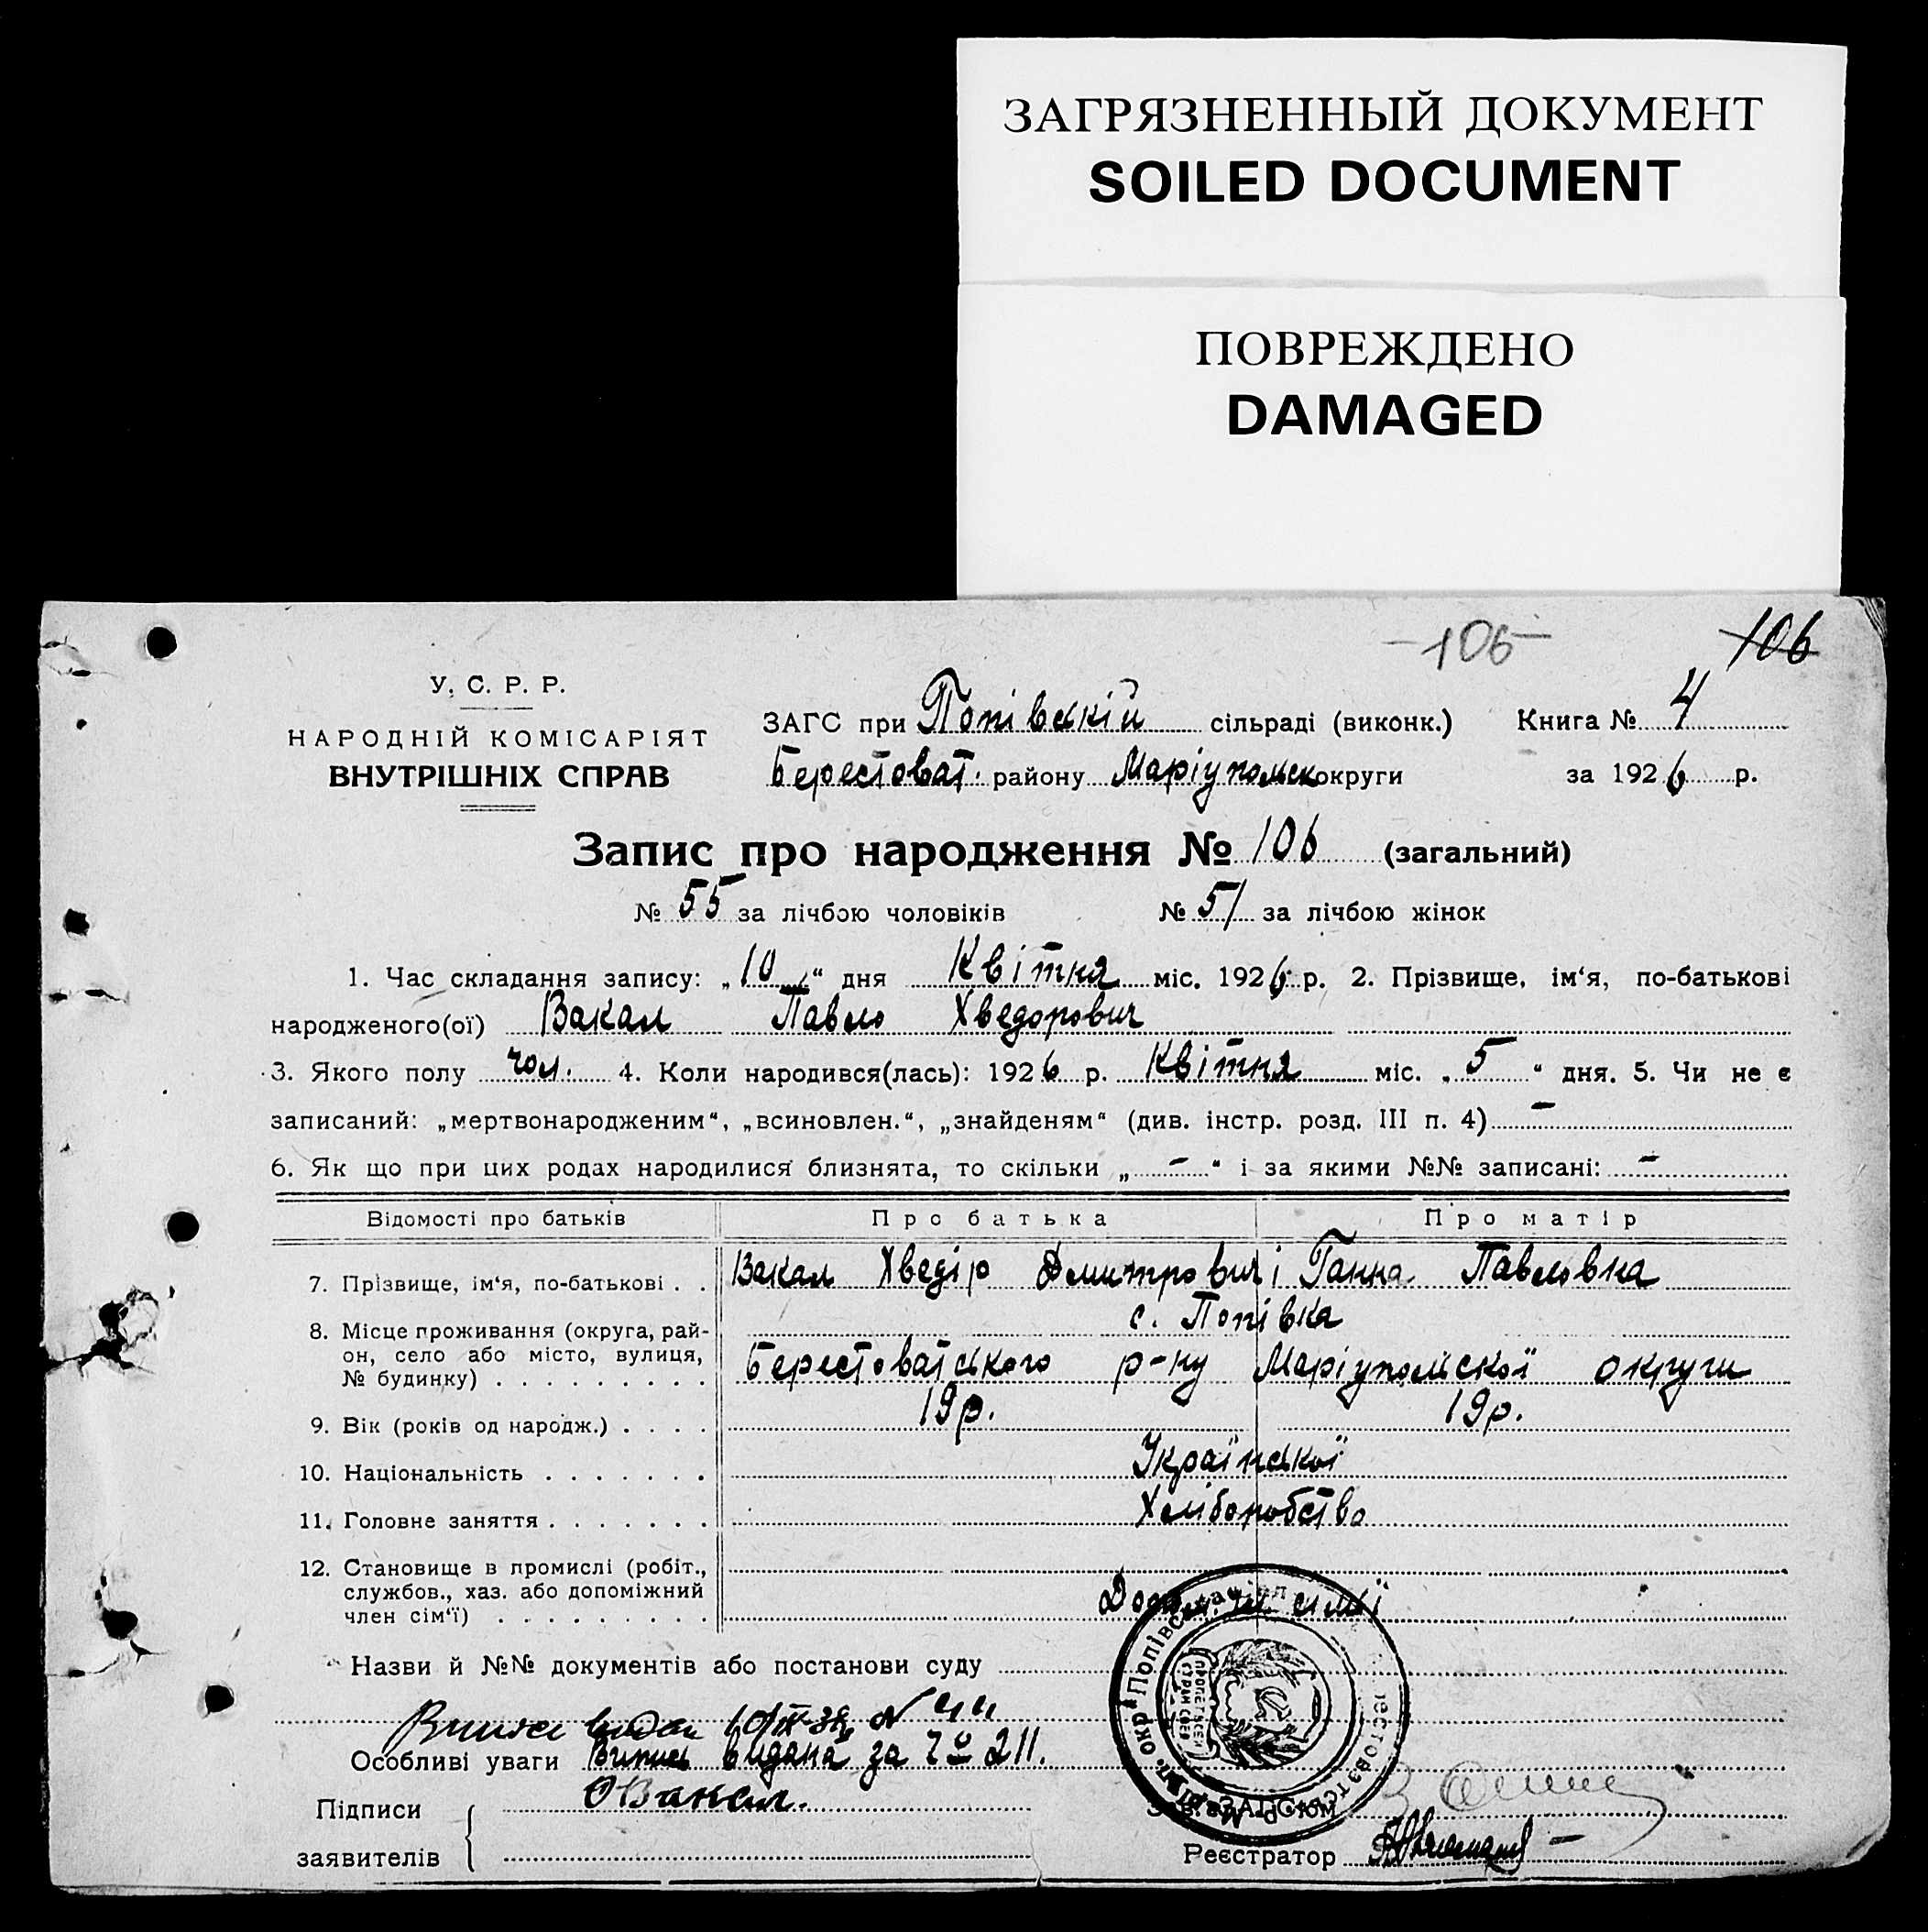 ЗАГРЯЗНЕННЫЙ ДОКУМЕНТ
SOILED DOCUMENT
ПОВРЕЖДЕНО
DAMAGED
106 106
У. С. Р. Р.
НАРОДНІЙ КОМІСАРІЯТ
ВНУТРІШНІХ СПРАВ
ЗАГС при Попівській сільраді (виконк.) Книга № 4
Берестоват. району Маріупольск округи за 1926 р.
Запис про народження № 106 (загальний)
№ 55 за лічбою чоловіків № 51 за лічбою жінок
1. Час складання запису: „10“ дня Квітня міс. 1926 р. 2. Прізвище, ім‘я, по-батькові
народженого(ої) Вакал Павло Хведорович
3. Якого полу чол. 4. Коли народився(лась): 1926 р. Квітня міс. „5“ дня. 5. Чи не є
записаний: „мертвонародженим“, „всиновлен.“, „знайденям“ (див. інстр. розд. III п. 4) –
6. Як що при цих родах народилися близнята, то скільки „–“ і за якими №№ записані: –
Відомості про батьків Про батька Про матір
7. Прізвище, ім‘я, по-батькові . . Вакал Хведір Дмитрович і Ганна Павловна
8. Місце проживання (округа, рай- с. Попівка
он, село або місто, вулиця,
№ будинку) . . . . . . . . . Берестоватського р-ну Маріупольскої округи
9. Вік (років од народж.) . . . . 19р. 19р.
10. Національність . . . . . . . Української
11. Головне заняття . . . . . . . Хліборобство
12. Становище в промислі (робіт.,
службов., хаз. або допоміжний
член сім‘ї) . . . . . . . . . сімї
Назви й №№ документів або постанови суду
Особливі уваги Випись видана за № 211.
Підписи ОВакал.
заявителів
Зав. ЗАГСом
Реєстратор